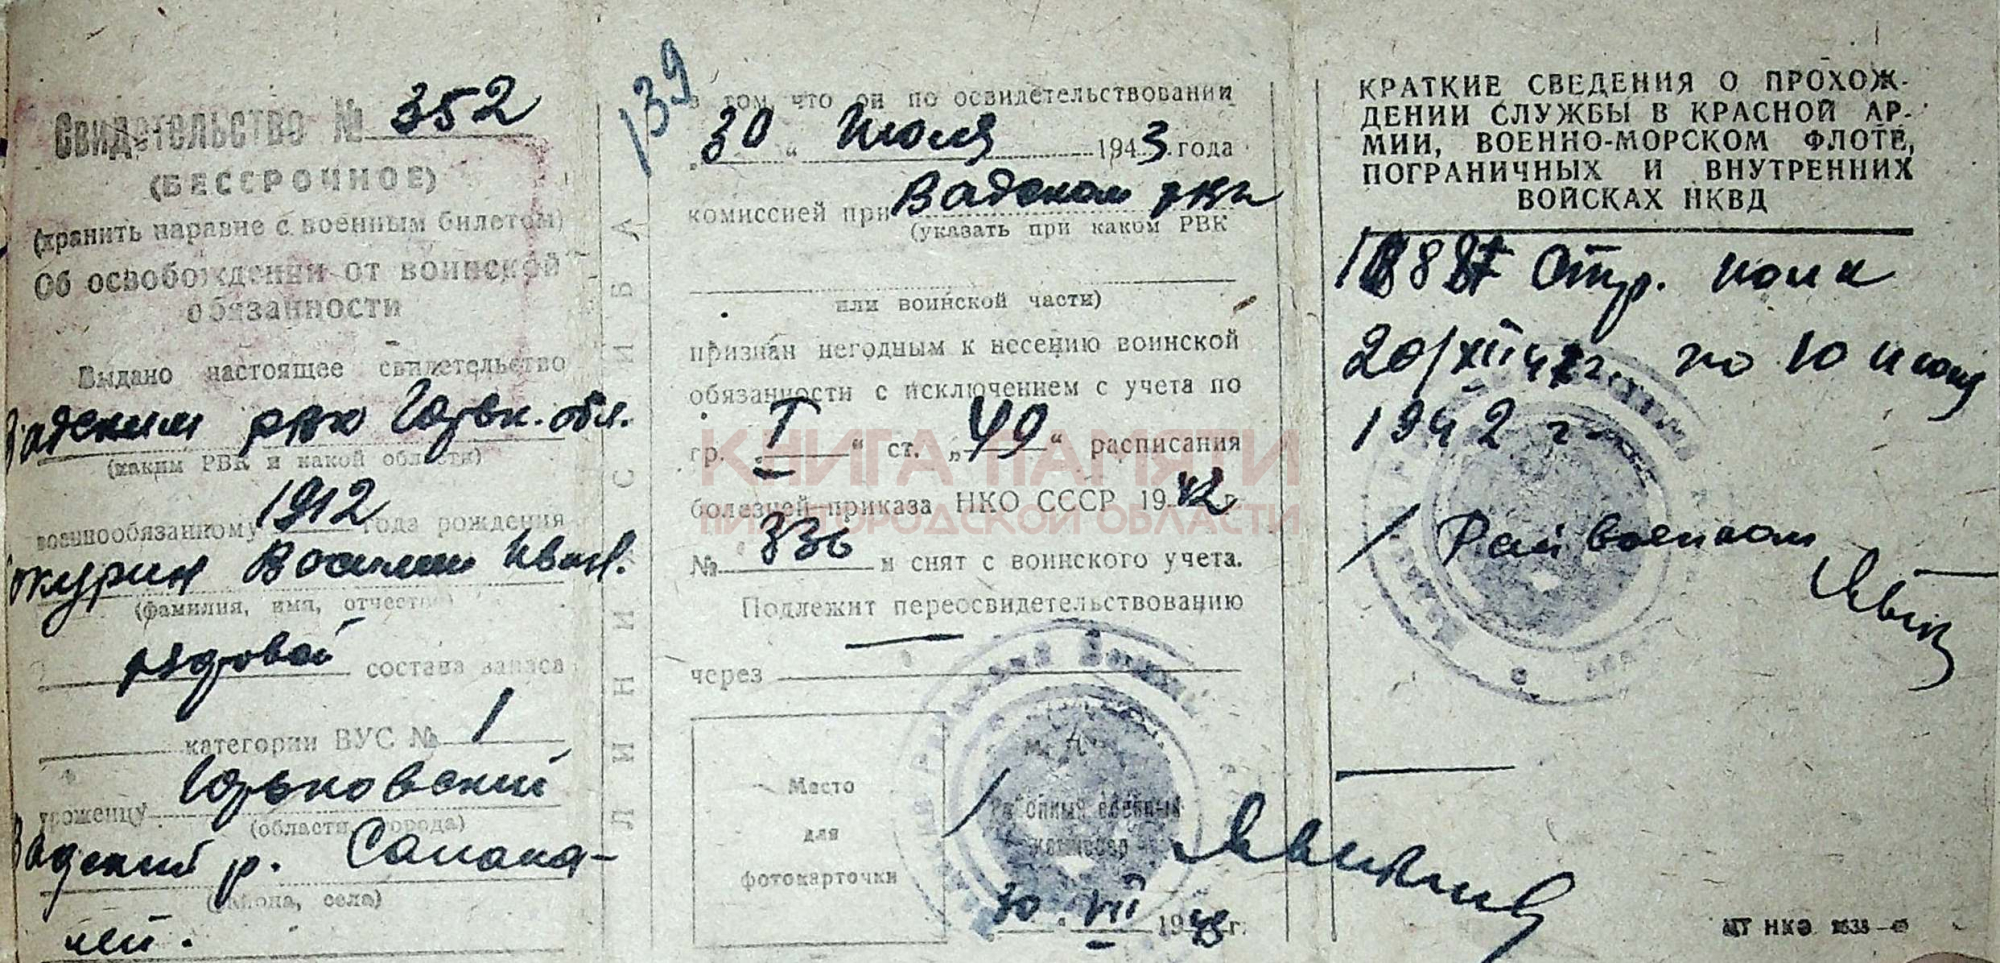 Свидетельство № 352
(БЕССРОЧНОЕ)
(хранить наравне с военным билетом)
Об освобождении от воинской
обязанности
Выдано настоящее свидетельство
Вадским рвк Горьк. обл.
(каким РВК и какой области)
военнообязанному 1912 года рождения
Василий
(фамилия, имя, отчество)
рядовой состава запаса
категории ВУС № 1
уроженцу Горьковский
(области, города)
Вадский р.
(района, села)
ЛИНИЯ СГИБА
139
в том, что он по освидетельствовании
„30“ Июля 1943 года
комиссией при Вадском рвк
(указать при каком РВК
или воинской части)
признан негодным к несению воинской
обязанности с исключением с учета по
гр. „I“ ст. „49“ расписания
болезней приказа НКО СССР 1942 г.
№ 336 и снят с воинского учета.
Подлежит переосвидетельствованию
через —
Место
для
фотокарточки
Районный военный
комиссар
30 VII 1943 г.
КРАТКИЕ СВЕДЕНИЯ О ПРОХОЖ-
ДЕНИИ СЛУЖБЫ В КРАСНОЙ АР-
МИИ, ВОЕННО-МОРСКОМ ФЛОТЕ,
ПОГРАНИЧНЫХ И ВНУТРЕННИХ
ВОЙСКАХ НКВД
Стр. полк
по 10 июня
1942 г.
Райвоенком
КНИГА ПАМЯТИ
НИЖЕГОРОДСКОЙ ОБЛАСТИ